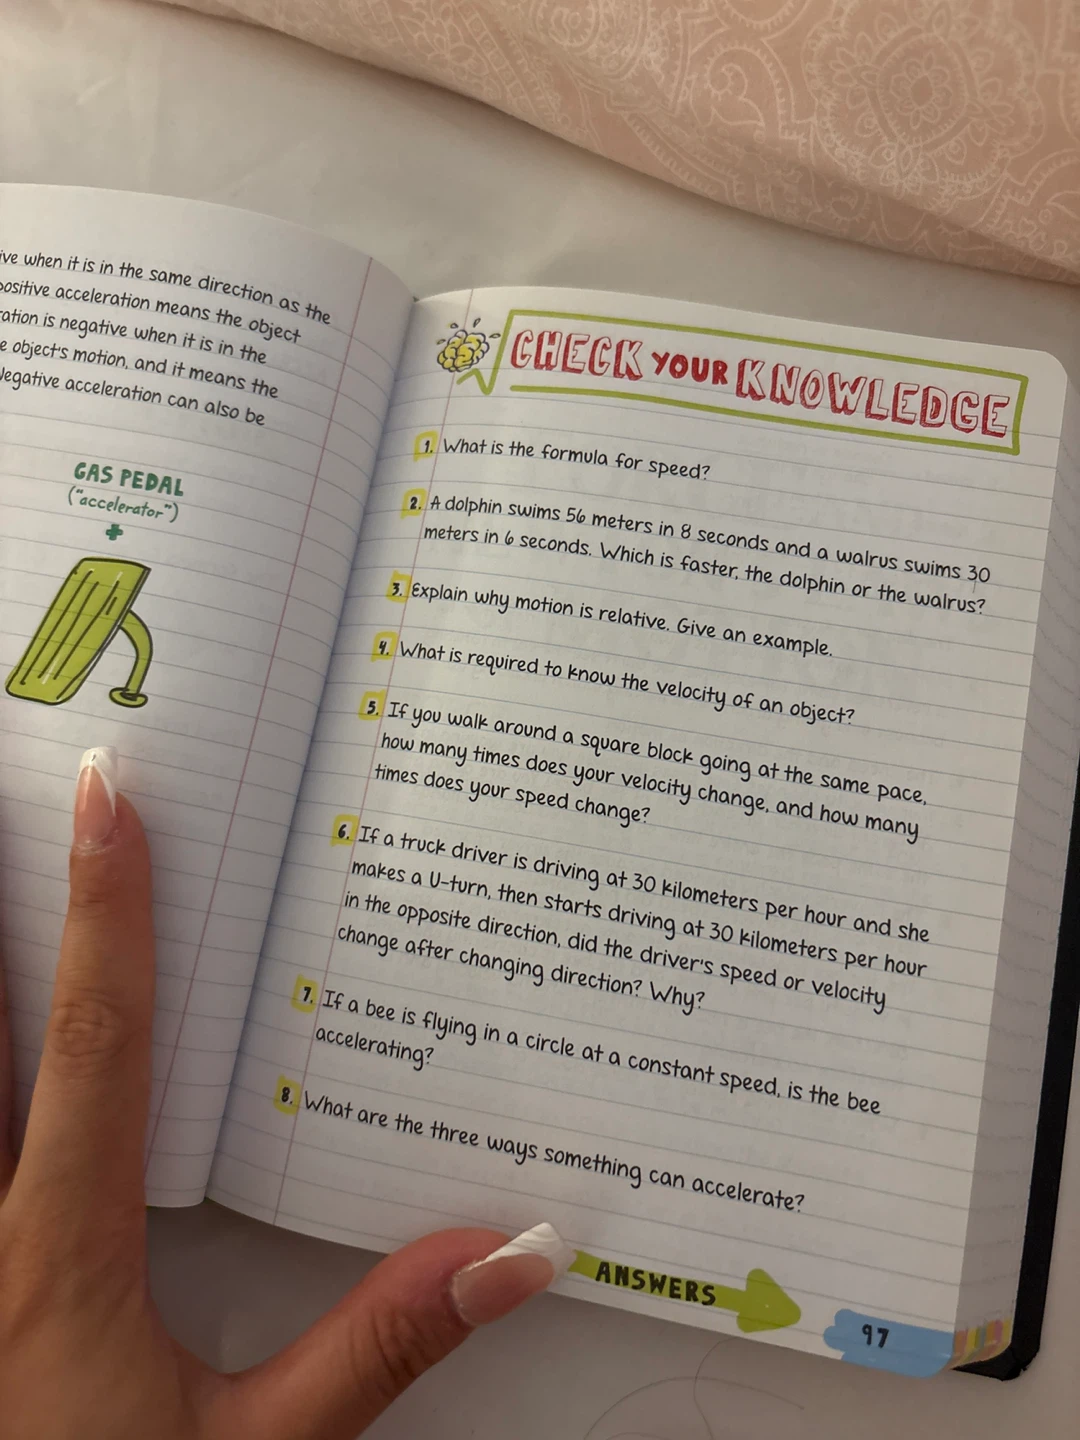 ive when it is in the same direction as the
positive acceleration means the object
ation is negative when it is in the
e object's motion, and it means the
Negative acceleration can also be
GAS PEDAL
("accelerator")
+
CHECK YOUR KNOWLEDGE
1. What is the formula for speed?
2. A dolphin swims 56 meters in 8 seconds and a walrus swims 30
meters in 6 seconds. Which is faster, the dolphin or the walrus?
3. Explain why motion is relative. Give an example.
4. What is required to know the velocity of an object?
5. If you walk around a square block going at the same pace,
how many times does your velocity change, and how many
times does your speed change?
6. If a truck driver is driving at 30 kilometers per hour and she
makes a U-turn, then starts driving at 30 kilometers per hour
in the opposite direction, did the driver's speed or velocity
change after changing direction? Why?
7. If a bee is flying in a circle at a constant speed, is the bee
accelerating?
8. What are the three ways something can accelerate?
ANSWERS
97